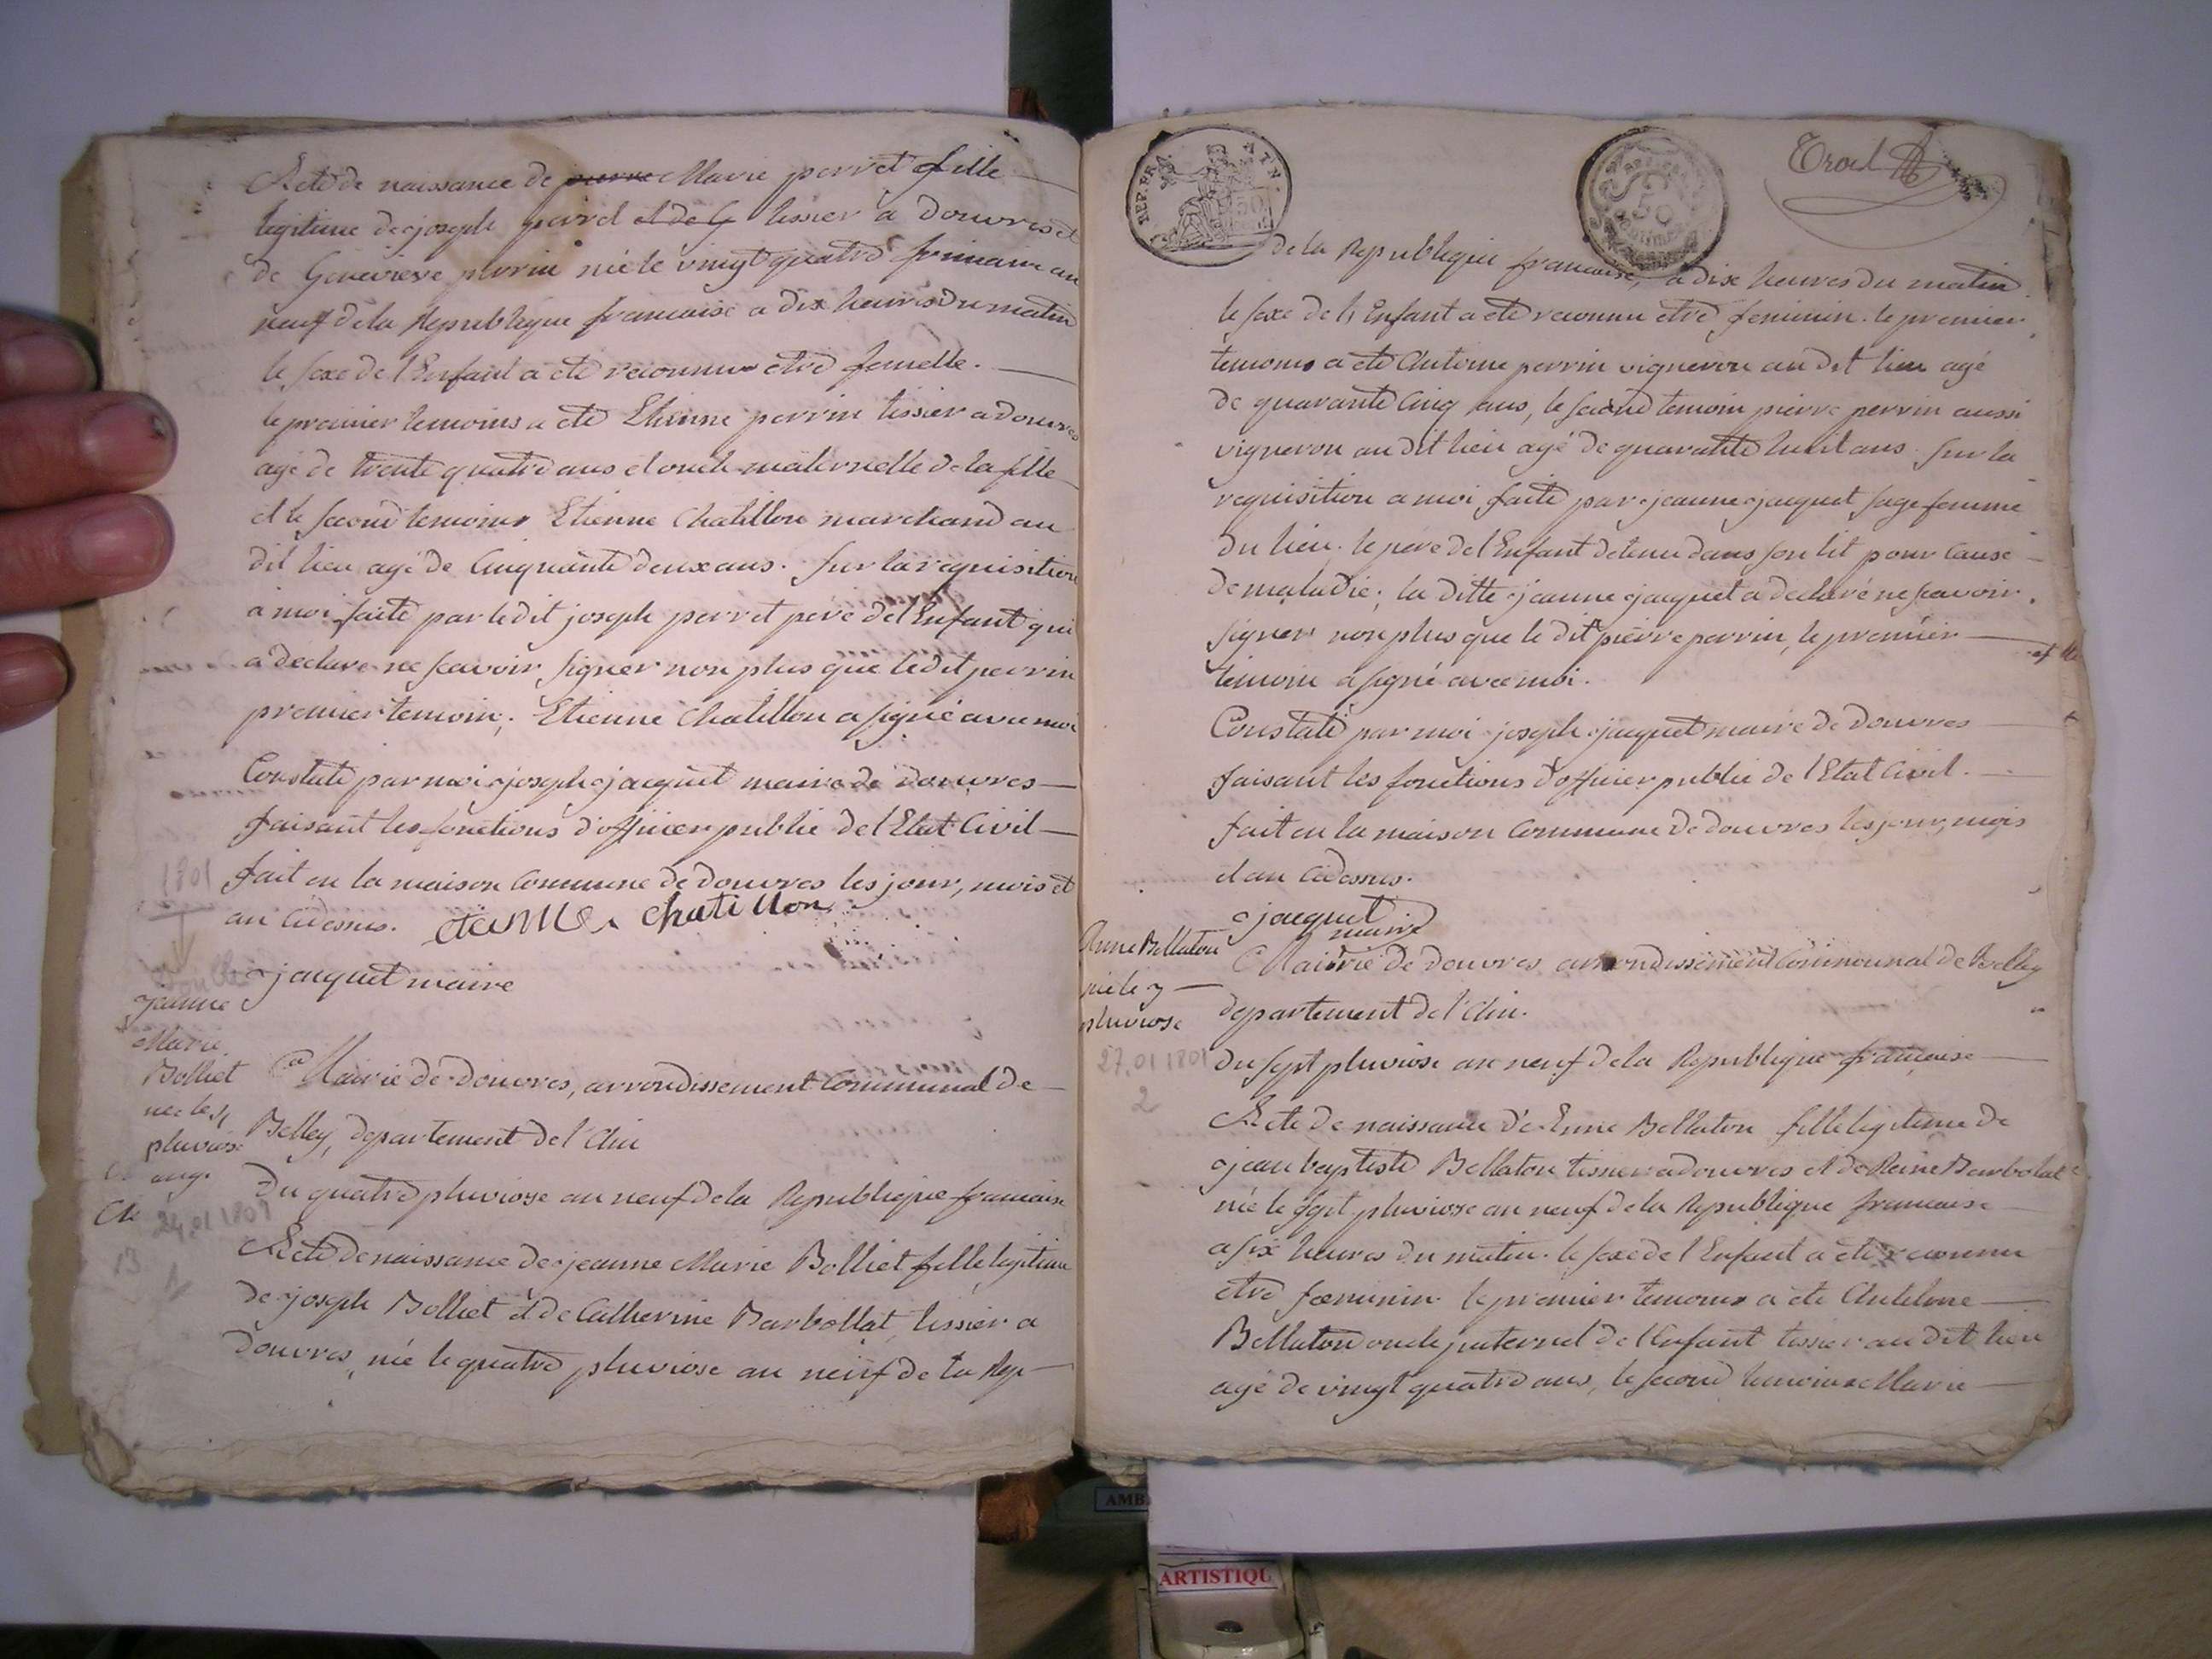 Acte de naissance de pierre Marie perret fille
legitime de joseph perret et de G tissier a douvres et
de Genevieve perrin née le vingt quatre frimaire an
neuf de la Republique francaise a dix heures du matin
le sexe de l'Enfant a eté reconnu etre femelle.
le premier temoins a eté Etienne perrin tissier a douvres
agé de trente quatre ans et oncle maternelle de la fille
et le second temoins Etienne Chatillon marchand au
dit lieu agé de Cinquante deux ans. sur la requisition
a moi faite par ledit joseph perret pere de l'Enfant qui
a declare ne scavoir signer non plus que ledit perrin
premier temoin; Etienne Chatillon a signé avec moi
Constaté par moi joseph jacquet maire de douvres
faisant les fonctions d'officier public de l'Etat Civil
fait en la maison Commune de douvres les jour, mois et
an Cidessus. Chatillon
jacquet maire
1801
jeanne
Marie
Bolliet
née le 4
pluviose
24.01 1801
13 1
Mairie de Douvres, arrondissement Communal de
Belley, departement de l'Ain
Du quatre pluviose an neuf de la Republique francaise
Acte de naissance de jeanne Marie Bolliet fille legitime
de joseph Bolliet et de Catherine Barbollat, tissier a
douvres, née le quatre pluviose an neuf de la Rep
REP. FRA. 50
50
de la Republique francaise, a dix heures du matin
le sexe de l'Enfant a eté reconnu etre feminin. le premier
temoins a eté Antoine perrin vigneron au dit lieu agé
de quarante Cinq ans, le second temoin pierre perrin aussi
vigneron au dit lieu agé de quarante huit ans. sur la
requisition a moi faite par jeanne jacquet sage femme
du lieu. le pere de l'Enfant detenu dans son lit pour Cause
de maladie; la ditte jeanne jacquet a declaré ne scavoir
signer non plus que le dit pierre perrin, le premier
temoin a signé avec moi.
Constaté par moi joseph jacquet maire de Douvres
faisant les fonctions d'officier public de l'Etat Civil.
fait en la maison Commune de douvres les jour, mois
et an Cidessus.
jacquet
maire
Anne Bellaton
née le 7
pluviose
27.01 1801
2
Mairie de douvres arrondissement Communal de Belley
departement de l'Ain.
Du sept pluviose an neuf de la Republique francaise
Acte de naissance d'Anne Bellaton fille legitime de
jean baptiste Bellaton tissier a douvres et de Reine Barbolat
née le sept pluviose an neuf de la Republique francaise
a six heures du matin. le sexe de l'Enfant a eté reconnu
etre fœminin. le premier temoins a eté Anthelme
Bellaton oncle paternel de l'Enfant tissier au dit lieu
agé de vingt quatre ans, le second temoins Marie
AMB
ARTISTIQU